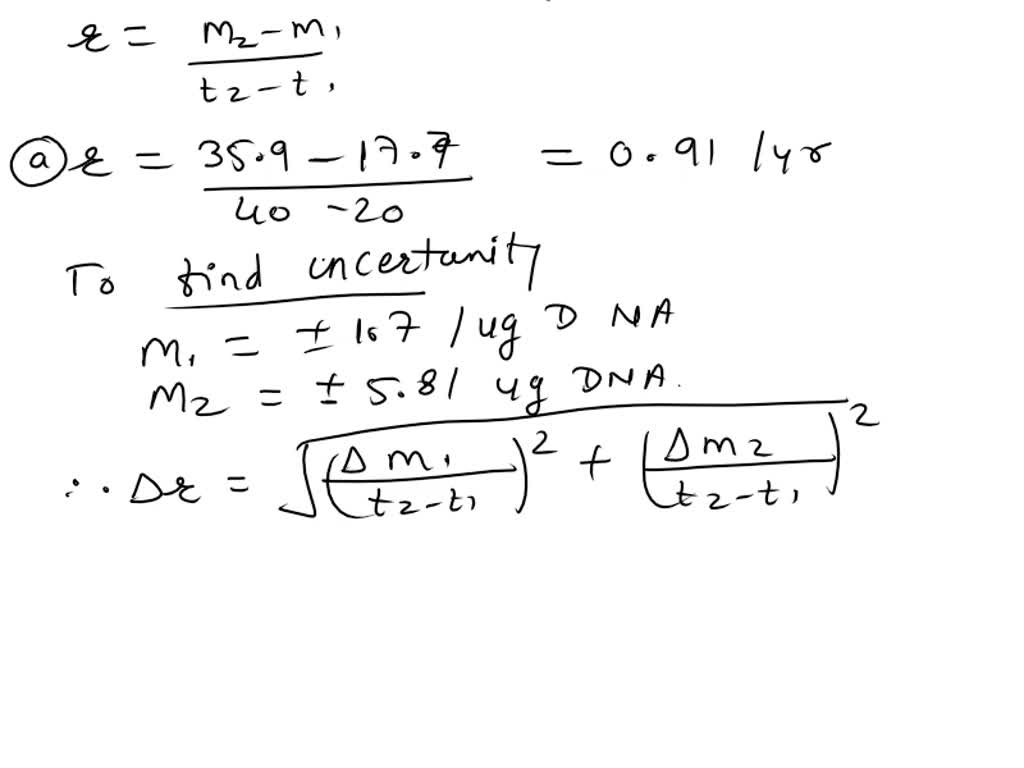 r = m2 - m1 / t2 - t1
(a) r = 35.9 - 17.7 / 40 - 20 = 0.91 /yr
To find uncertanity
m1 = ± 1.7 / ug D NA
m2 = ± 5.81 ug DNA.
∴ Δr = √(Δ m1 / t2 - t1)^2 + (Δ m2 / t2 - t1)^2